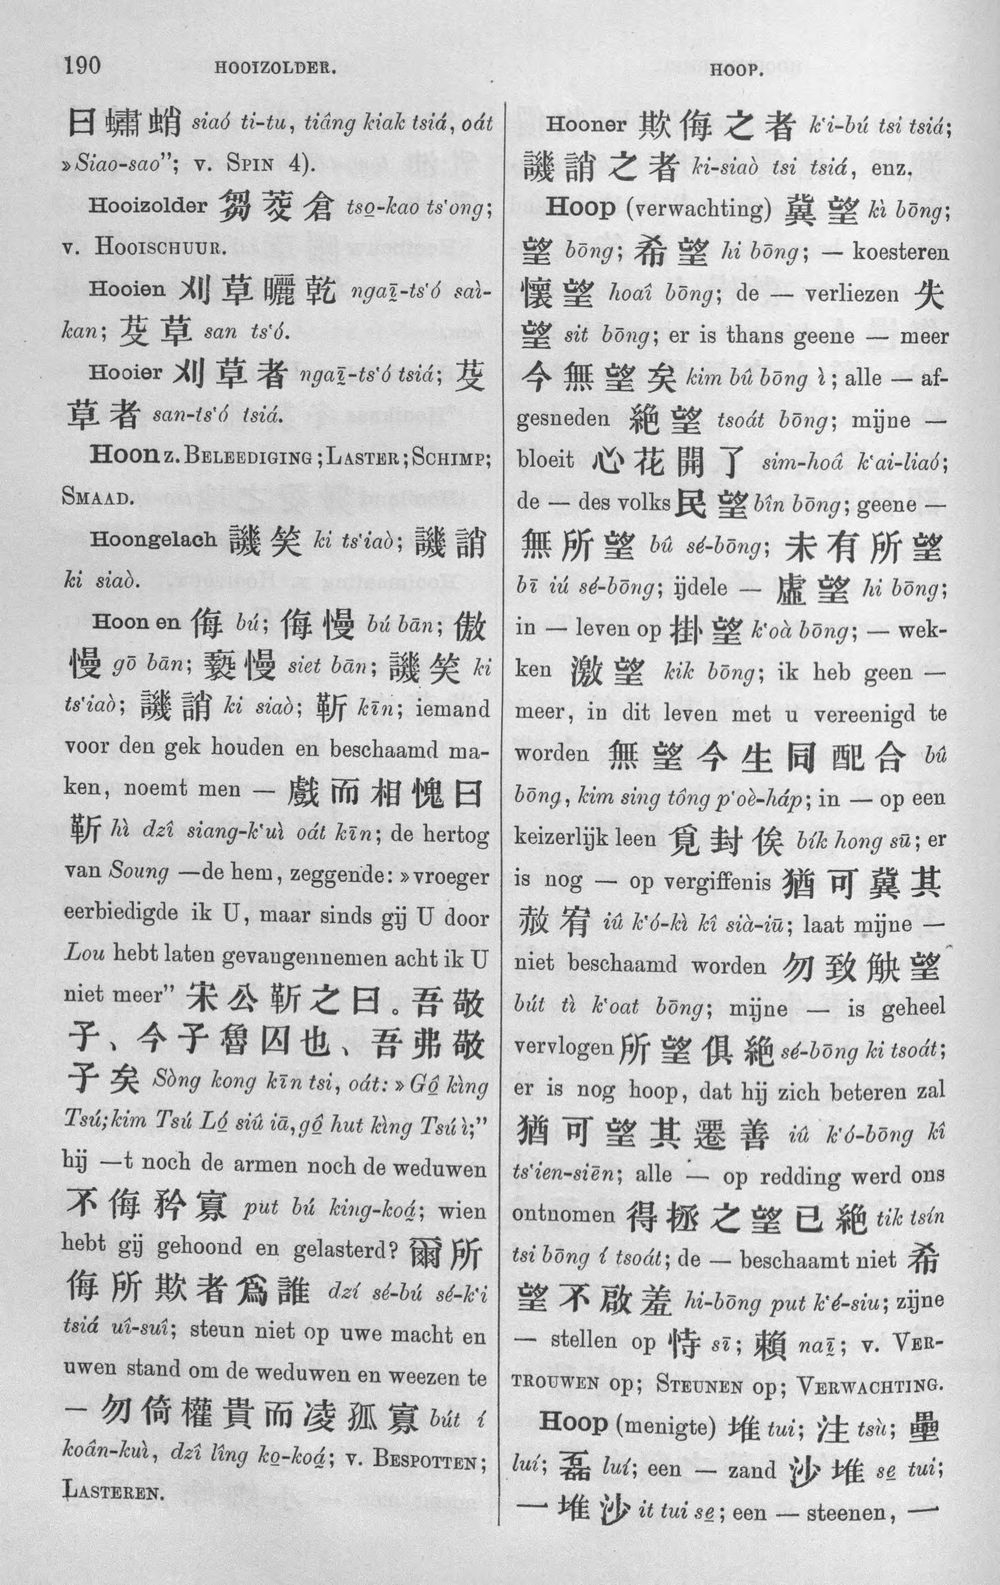 190
HOOIZOLDER.
HOOP.
曰蠨蛸 siaó ti-tu, tiâng kiak tsiá, oát
»Siao-sao”; v. SPIN 4).
Hooizolder 芻茭倉 tso̱-kao ts‘ong;
v. HOOISCHUUR.
Hooien 刈草曬乾 ngaī-ts‘ó saì-
kan; 芟草 san ts‘ó.
Hooier 刈草者 ngaī-ts‘ó tsiá; 芟
草者 san-ts‘ó tsiá.
Hoon z. BELEEDIGING; LASTER; SCHIMP;
SMAAD.
Hoongelach 譏笑 ki ts‘iaò; 譏誚
ki siaò.
Hoonen 侮 bú; 侮慢 bú bān; 傲
慢 gō bān; 褻慢 siet bān; 譏笑 ki
ts‘iaò; 譏誚 ki siaò; 靳 kīn; iemand
voor den gek houden en beschaamd ma-
ken, noemt men — 戲而相愧曰
靳 hì dzî siang-k‘uì oát kīn; de hertog
van Soung —de hem, zeggende: »vroeger
eerbiedigde ik U, maar sinds gij U door
Lou hebt laten gevangennemen acht ik U
niet meer” 宋公靳之曰。吾敬
子、今子魯囚也、吾弗敬
子矣 Sòng kong kīn tsi, oát: »Gô̱ kìng
Tsú; kim Tsú Ló̱ siû iā, gô̱ hut kìng Tsú ì;”
hij —t noch de armen noch de weduwen
不侮矜寡 put bú king-koá̱; wien
hebt gij gehoond en gelasterd? 爾所
侮所欺者爲誰 dzí sé-bú sé-k‘i
tsiá uî-suî; steun niet op uwe macht en
uwen stand om de weduwen en weezen te
— 勿倚權貴而凌孤寡 bút í
koân-kuì, dzî lîng ko̱-koá̱; v. BESPOTTEN;
LASTEREN.
Hooner 欺侮之者 k‘i-bú tsi tsiá;
譏誚之者 ki-siaò tsi tsiá, enz.
Hoop (verwachting) 冀望 kì bōng;
望 bōng; 希望 hi bōng; — koesteren
懷望 hoaî bōng; de — verliezen 失
望 sit bōng; er is thans geene — meer
今無望矣 kim bû bōng ì; alle — af-
gesneden 絶望 tsoát bōng; mijne —
bloeit 心花開了 sim-hoâ k‘ai-liaó;
de — des volks 民望 bîn bōng; geene —
無所望 bû sé-bōng; 未有所望
bī iú sé-bōng; ijdele — 虛望 hi bōng;
in — leven op 掛望 k‘oà bōng; — wek-
ken 激望 kik bōng; ik heb geen —
meer, in dit leven met u vereenigd te
worden 無望今生同配合 bû
bōng, kim sing tông p‘oè-háp; in — op een
keizerlijk leen 覓封俟 bík hong sū; er
is nog — op vergiffenis 猶可冀其
赦宥 iû k‘ó-kì kî sià-iū; laat mijne —
niet beschaamd worden 勿致觖望
bút tì k‘oat bōng; mijne — is geheel
vervlogen 所望俱絶 sé-bōng ki tsoát;
er is nog hoop, dat hij zich beteren zal
猶可望其遷善 iû k‘ó-bōng kî
ts‘ien-siēn; alle — op redding werd ons
ontnomen 得拯之望已絶 tik tsín
tsi bōng í tsoát; de — beschaamt niet 希
望不啟羞 hi-bōng put k‘é-siu; zijne
— stellen op 恃 sī; 賴 naī; v. VER-
TROUWEN op; STEUNEN op; VERWACHTING.
Hoop (menigte) 堆 tui; 注 tsù; 壘
luí; 磊 luí; een — zand 沙堆 se̱ tui;
一堆沙 it tui se̱; een — steenen, 一